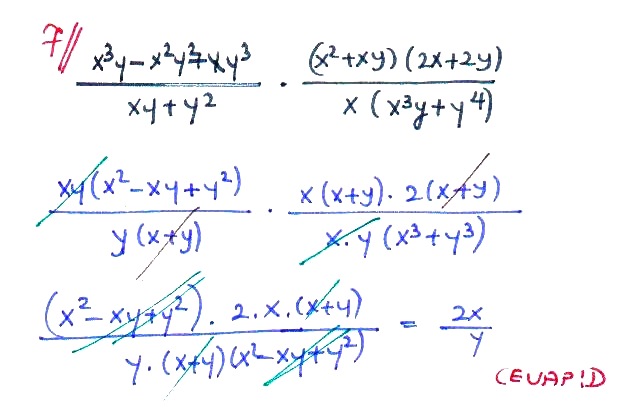 7// x³y-x²y²+xy³ / xy+y² · (x²+xy)(2x+2y) / x(x³y+y⁴)
xy(x²-xy+y²) / y(x+y) · x(x+y)·2(x+y) / x·y(x³+y³)
(x²-xy+y²)·2·x·(x+y) / y·(x+y)(x²-xy+y²) = 2x / y
CEVAP:D